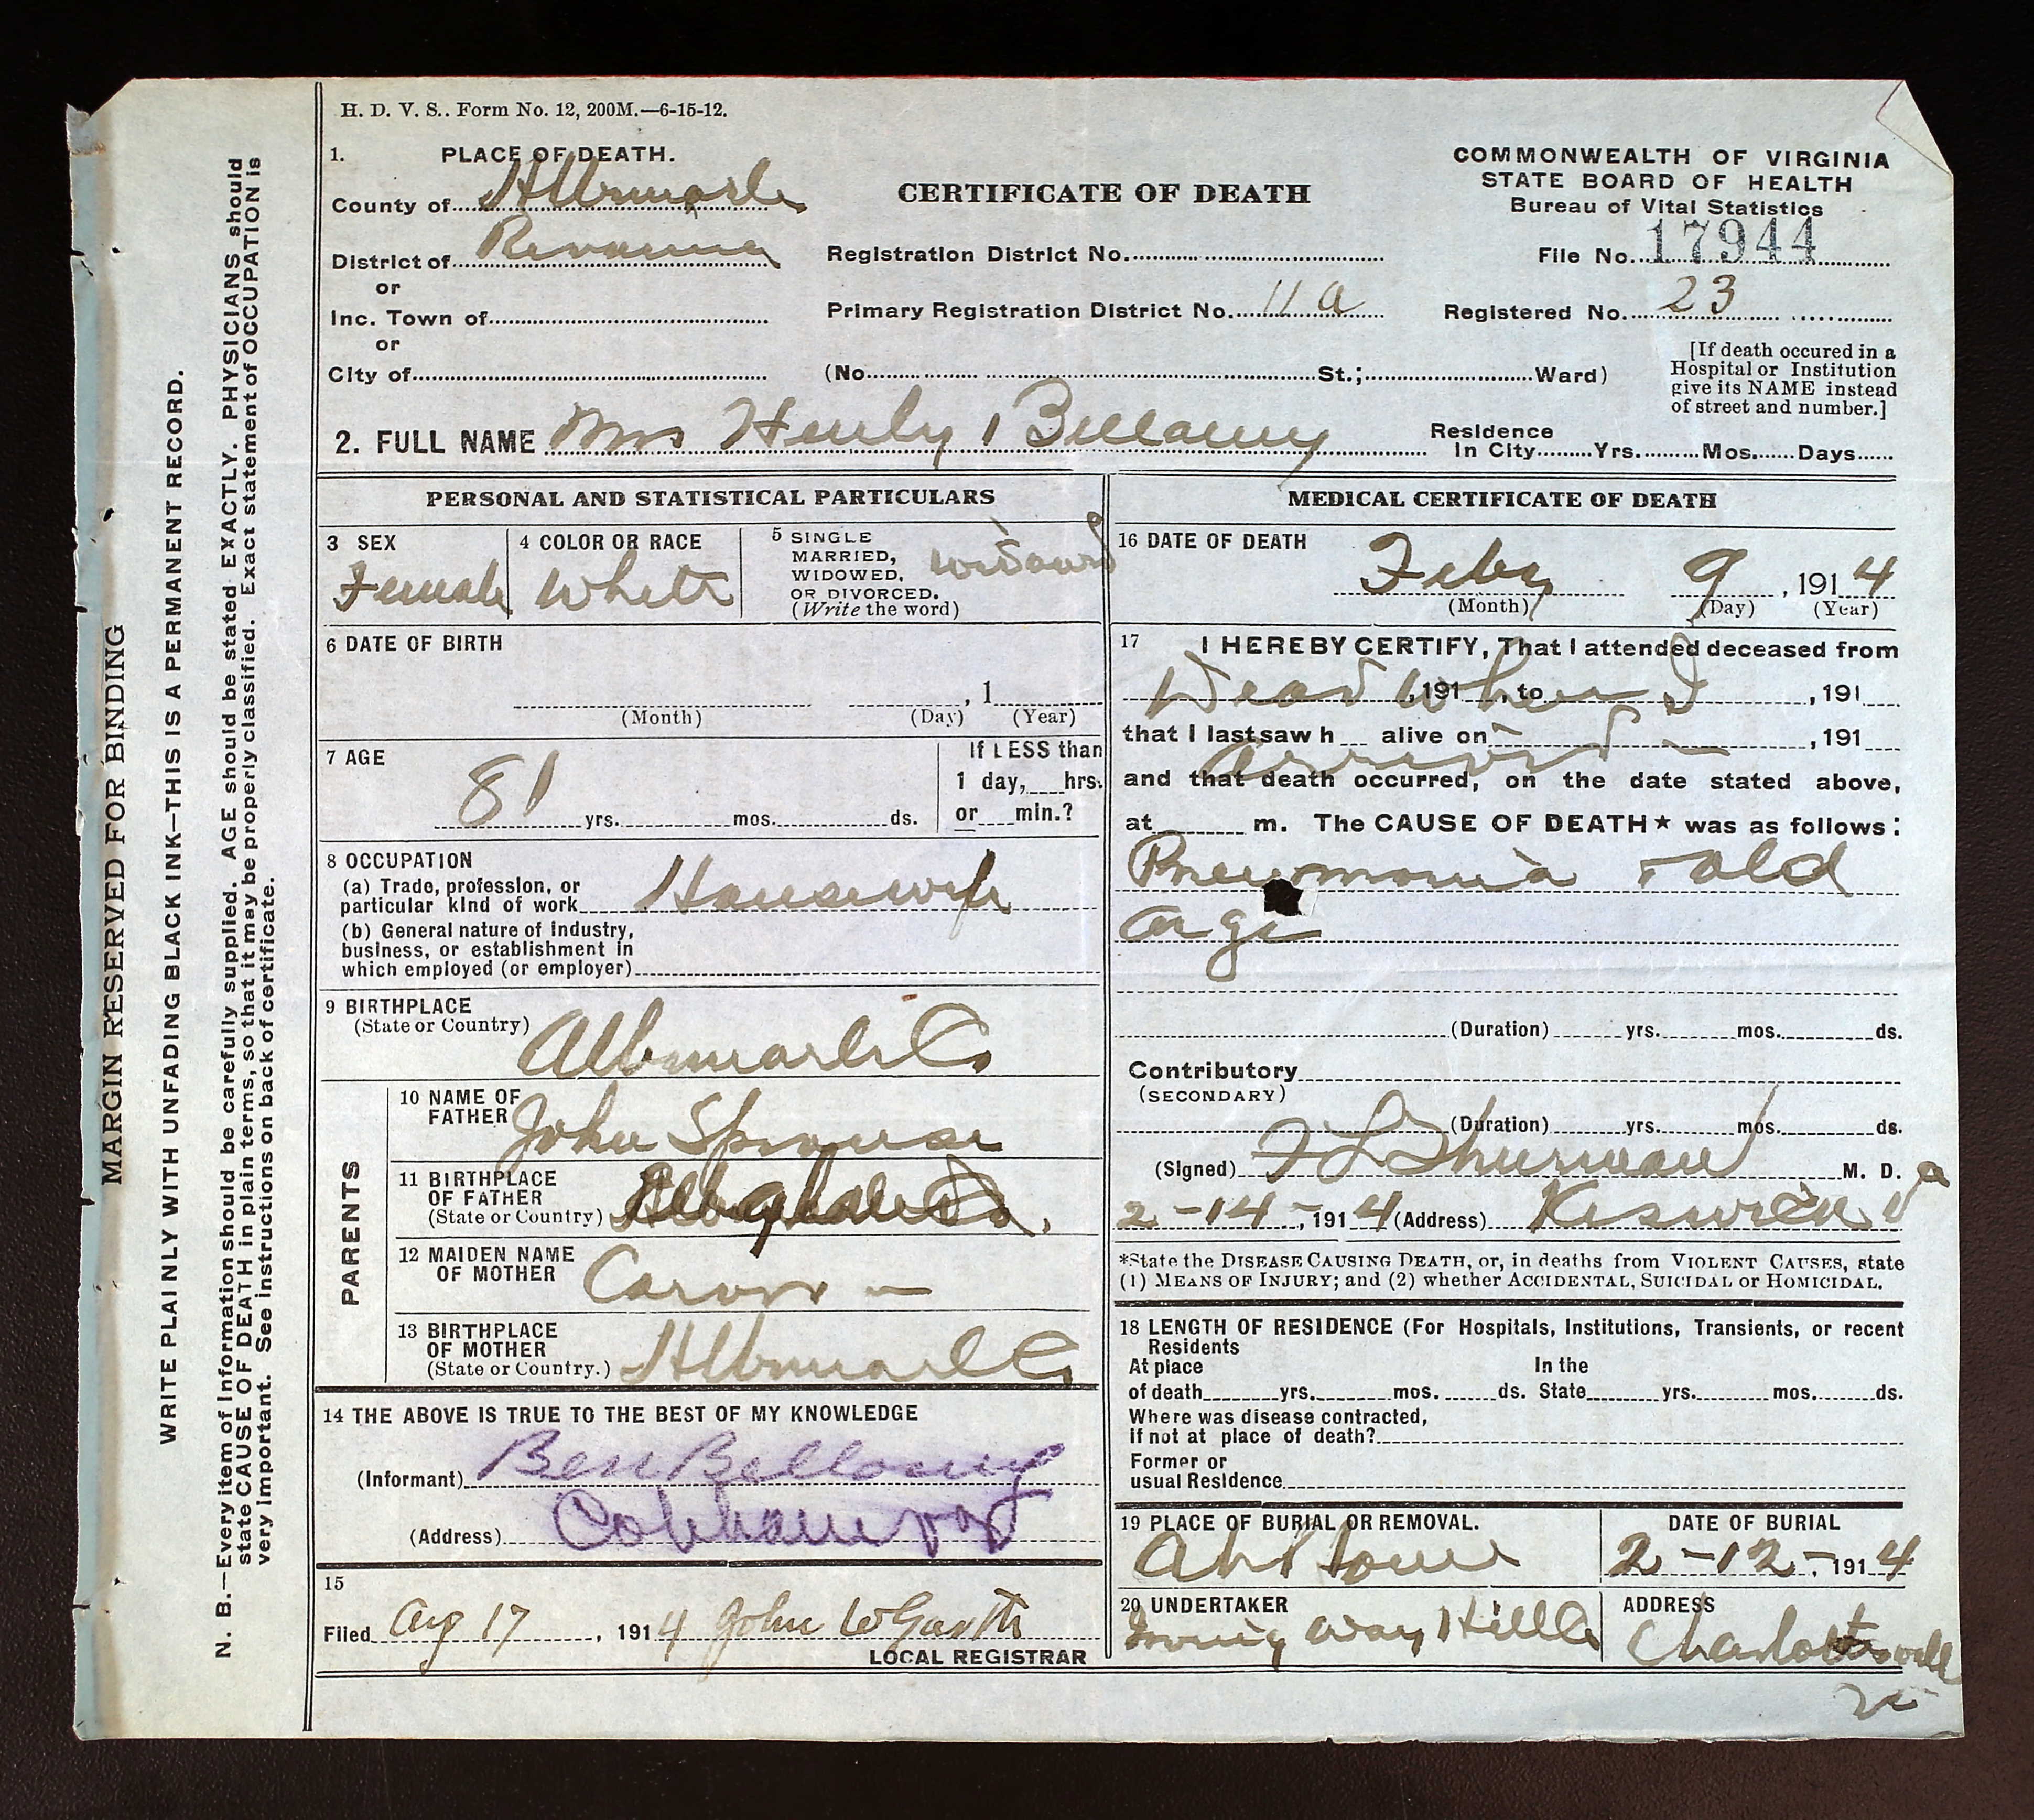 H. D. V. S.. Form No. 12, 200M.—6-15-12.
1. PLACE OF DEATH.
County of Albemarle
District of Rivanna
or
Inc. Town of
or
City of
CERTIFICATE OF DEATH
Registration District No.
Primary Registration District No. 11 a
(No. St.; Ward)
COMMONWEALTH OF VIRGINIA
STATE BOARD OF HEALTH
Bureau of Vital Statistics
File No. 17944
Registered No. 23
[If death occured in a
Hospital or Institution
give its NAME instead
of street and number.]
2. FULL NAME Mrs Henly Bellamy
Residence
In City Yrs. Mos. Days
PERSONAL AND STATISTICAL PARTICULARS
3 SEX
Female
4 COLOR OR RACE
White
5 SINGLE
MARRIED,
WIDOWED,
OR DIVORCED.
(Write the word)
widowd
6 DATE OF BIRTH
, 1
(Month) (Day) (Year)
7 AGE
81 yrs. mos. ds.
If LESS than
1 day, hrs.
or min.?
8 OCCUPATION
(a) Trade, profession, or
particular kind of work Housewife
(b) General nature of industry,
business, or establishment in
which employed (or employer)
9 BIRTHPLACE
(State or Country)
Albemarle Co
PARENTS
10 NAME OF
FATHER
John Sprouse
11 BIRTHPLACE
OF FATHER
(State or Country)
12 MAIDEN NAME
OF MOTHER
13 BIRTHPLACE
OF MOTHER
(State or Country.)
Albemarle Co
14 THE ABOVE IS TRUE TO THE BEST OF MY KNOWLEDGE
(Informant) Ben Bellamy
(Address) Cobham
15
Filed Aug 17, 1914 John W Garth
LOCAL REGISTRAR
MEDICAL CERTIFICATE OF DEATH
16 DATE OF DEATH
Feby 9, 1914
(Month) (Day) (Year)
17 I HEREBY CERTIFY, That I attended deceased from
, 191 , to , 191
Dead when I
that I last saw h alive on , 191
arrived
and that death occurred, on the date stated above,
at m. The CAUSE OF DEATH★ was as follows:
Pneumonia + old
age
(Duration) yrs. mos. ds.
Contributory
(SECONDARY)
(Duration) yrs. mos. ds.
(Signed) F L Thurman M. D.
2-14-, 1914 (Address) Keswick Va
*State the DISEASE CAUSING DEATH, or, in deaths from VIOLENT CAUSES, state
(1) MEANS OF INJURY; and (2) whether ACCIDENTAL, SUICIDAL or HOMICIDAL.
18 LENGTH OF RESIDENCE (For Hospitals, Institutions, Transients, or recent
Residents
At place In the
of death yrs. mos. ds. State yrs. mos. ds.
Where was disease contracted,
if not at place of death?
Former or
usual Residence
19 PLACE OF BURIAL OR REMOVAL.
At Home
DATE OF BURIAL
2-12-, 1914
20 UNDERTAKER
Irving Way Hill Co
ADDRESS
Charlottsville
MARGIN RESERVED FOR BINDING
WRITE PLAINLY WITH UNFADING BLACK INK—THIS IS A PERMANENT RECORD.
N. B.—Every item of information should be carefully supplied. AGE should be stated EXACTLY. PHYSICIANS should
state CAUSE OF DEATH in plain terms, so that it may be properly classified. Exact statement of OCCUPATION is
very important. See instructions on back of certificate.